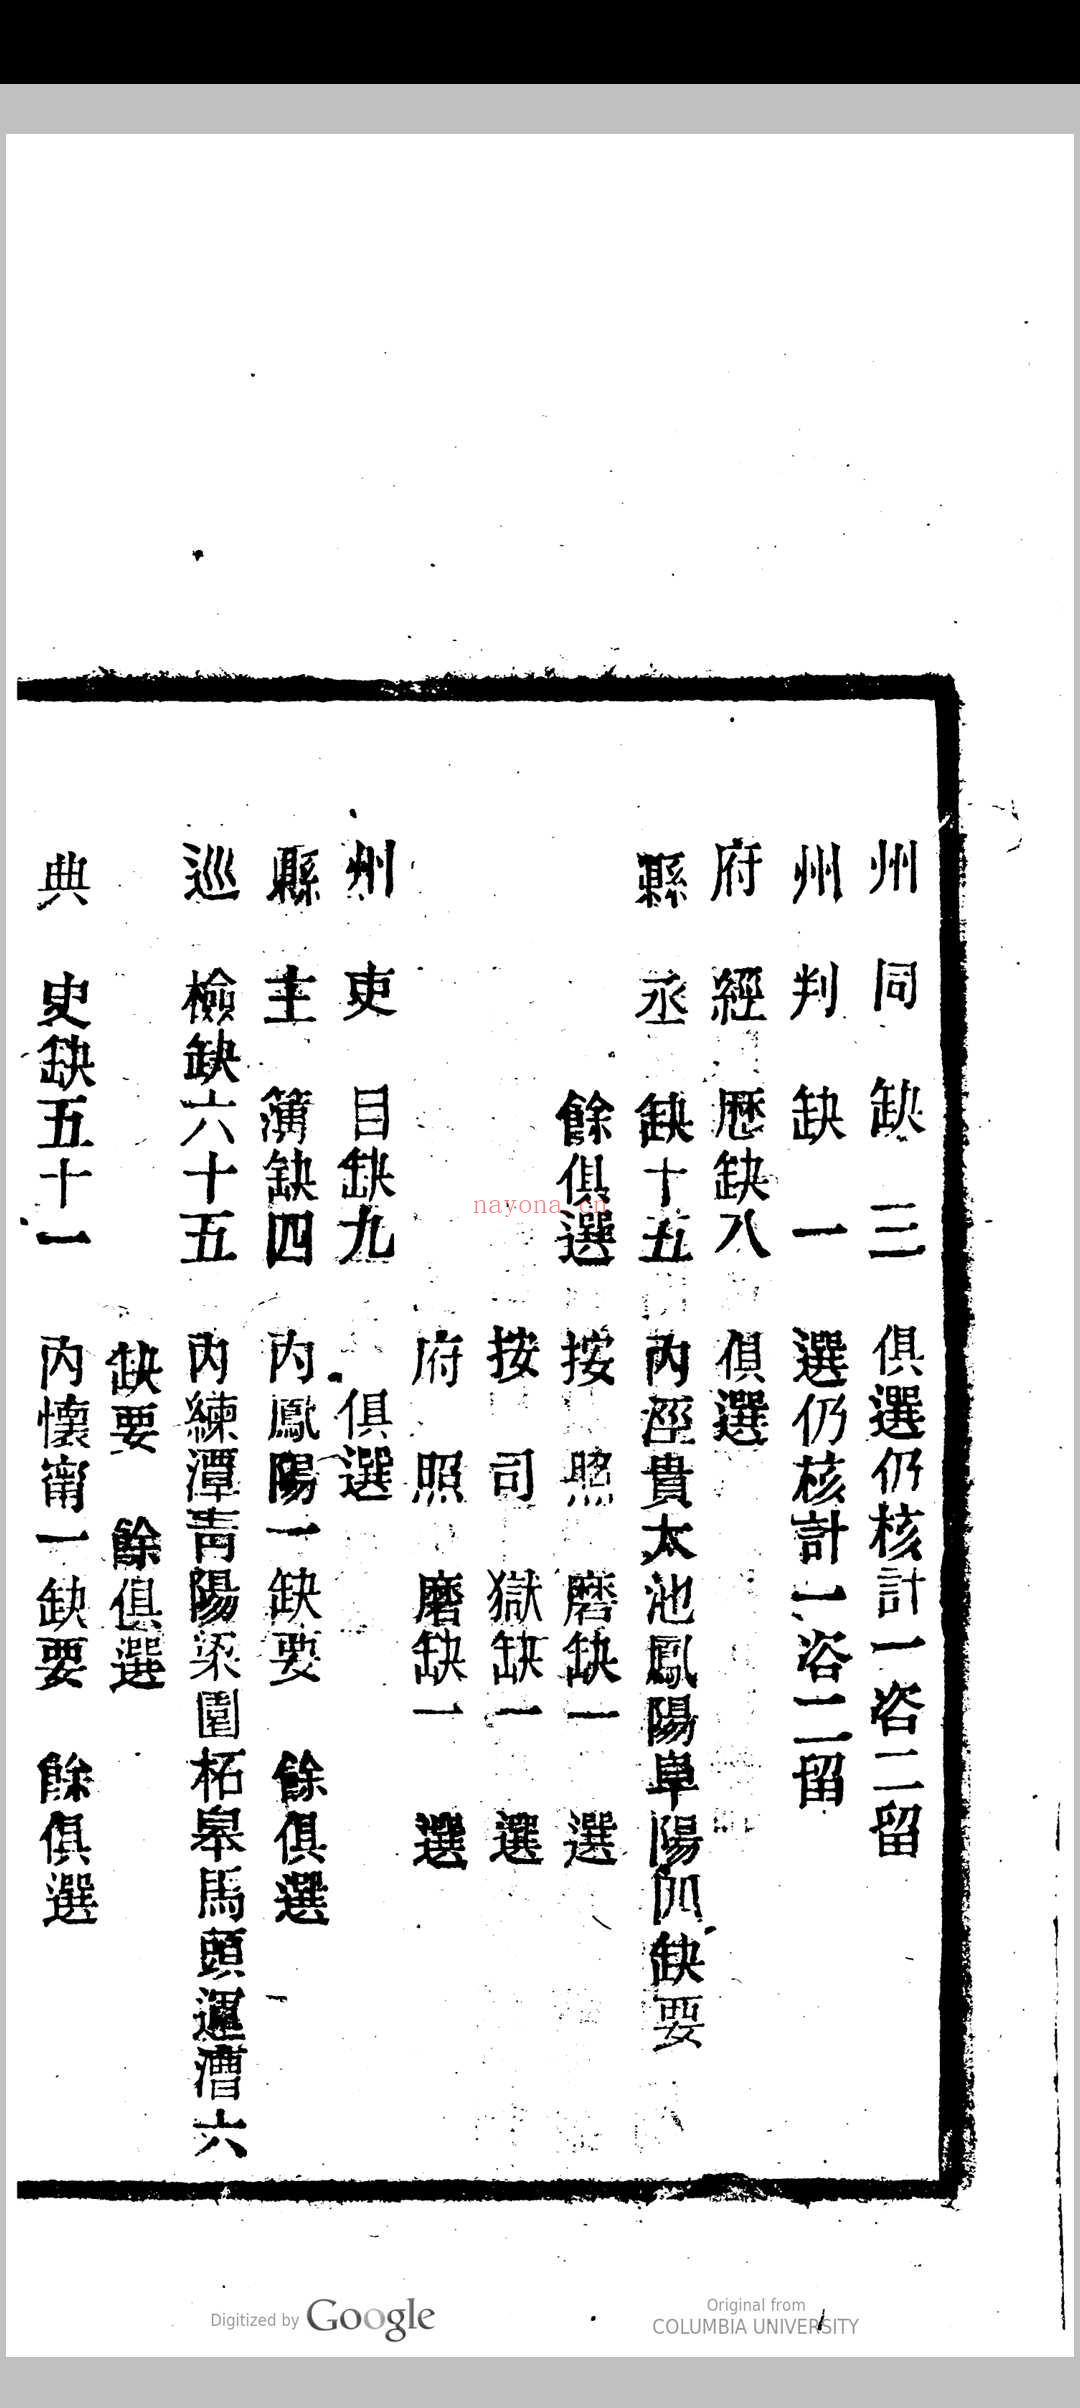 州同缺三　俱選仍核計一咨二留
州判缺一　選仍核計一咨二留
府經歷缺八　俱選
縣丞缺十五　內涇貴太池鳳陽阜陽四缺要
餘俱選　按照磨缺一　選
按司獄缺一　選
府照磨缺一　選
州吏目缺九　俱選
縣主簿缺四　內鳳陽一缺要　餘俱選
巡檢缺六十五　內練潭靑陽梁園柘皋馬頭運漕六
缺要　餘俱選
典史缺五十一　內懷甯一缺要　餘俱選
nayona.cn
Digitized by Google
Original from
COLUMBIA UNIVERSITY